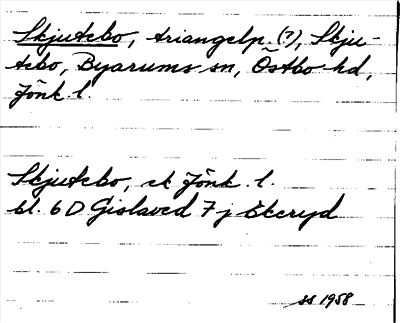 Skjutebo, triangelp. (7), Skju-
tebo, Byarums sn, Östbo hd,
Jönk. l.
Skjutebo, ek Jönk. l.
bl. 6D Gislaved 7j Ekeryd
ss 1958